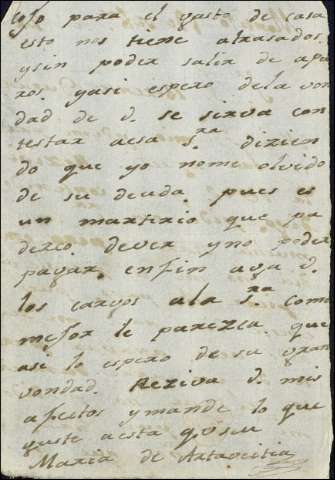 coso para el gasto de casa
esto nos tiene atrasados
ysin poder salir de apu
ros yasi espero dela von
dad de V. se sirva con
testar aesa s.ra dizien
do que yo nome olvido
de su deuda. pues es
un martirio que pa
dezco dever yno poder
pagar. enfin aga V.
los cargos ala s.ra como
mejor le parezca que
asi lo espero de su gran
vondad. Reziva V. mis
afectos ymande lo que
guste aesta
Maria de